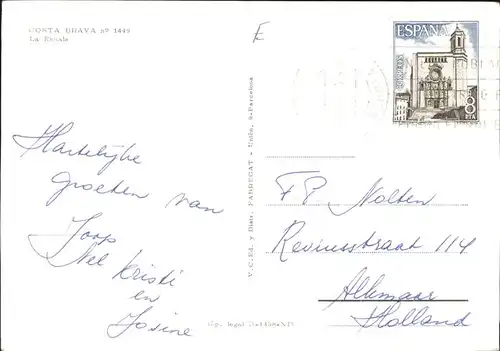 COSTA BRAVA nº 1449
La Escala
E
ESPAÑA
CORREOS
8
PTA
Hartelijke
groeten van
Joop
Nel Kristi
en
Josine
V. C. Ed. y Distr. FABREGAT - Unión, 8-Barcelona
FP Nolten
Reviusstraat 114
Alkmaar
Holland